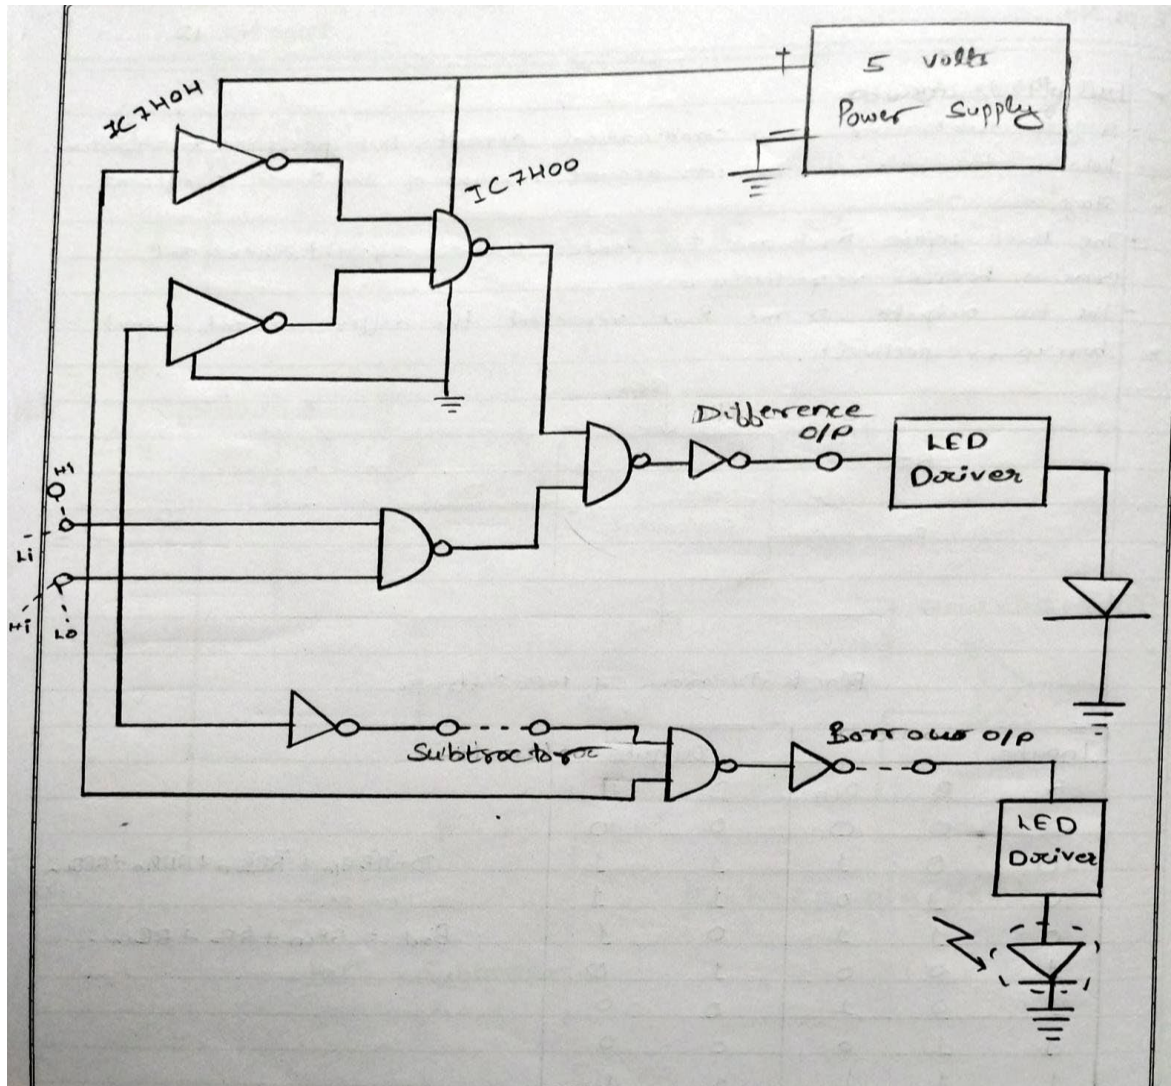 IC7404
+
5 volts
Power Supply
IC7400
Difference
O/P
LED
Driver
Hi
Hi
Lo
Subtractor
Borrow O/P
LED
Driver